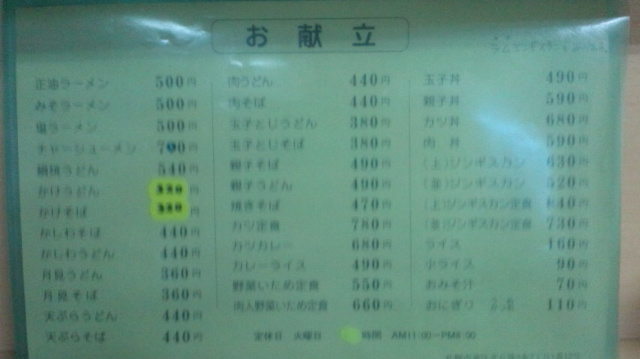 お献立
正油ラーメン 500円
みそラーメン 500円
塩ラーメン 500円
チャーシューメン 700円
鍋焼うどん 540円
かけうどん 330円
かけそば 330円
かしわそば 440円
かしわうどん 440円
月見うどん 360円
月見そば 360円
天ぷらうどん 440円
天ぷらそば 440円
肉うどん 440円
肉そば 440円
玉子とじうどん 380円
玉子とじそば 380円
親子そば 490円
親子うどん 490円
焼きそば 470円
カツ定食 780円
カツカレー 680円
カレーライス 490円
野菜いため定食 550円
肉入野菜いため定食 660円
玉子丼 490円
親子丼 590円
カツ丼 680円
肉丼 590円
(上)ジンギスカン 630円
(並)ジンギスカン 520円
(上)ジンギスカン定食 840円
(並)ジンギスカン定食 730円
ライス 160円
小ライス 90円
おみそ汁 70円
おにぎり 110円
定休日 火曜日 時間 AM11:00~PM8:00